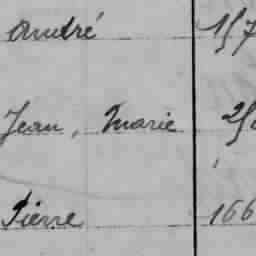 André 157
Jean, Marie
Pierre 166